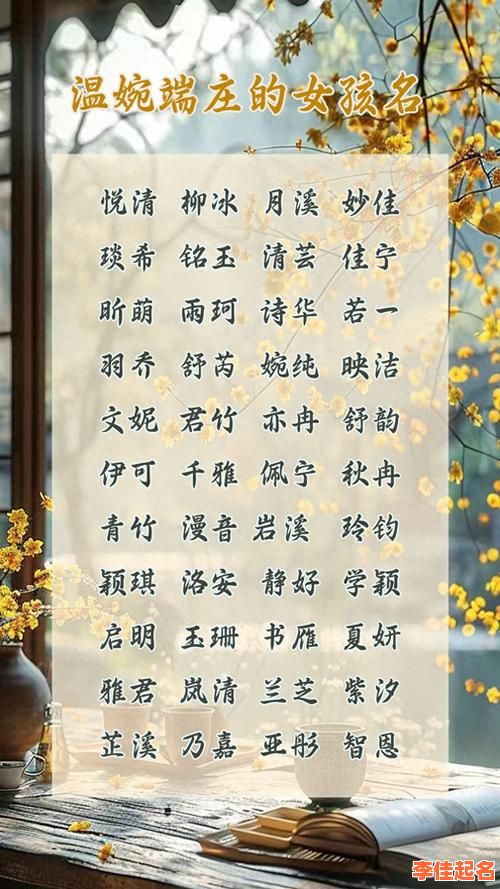 温婉端庄的女孩名
悦清 柳冰 月溪 妙佳
琰希 铭玉 清芸 佳宁
昕萌 雨珂 诗华 若一
羽乔 舒芮 婉纯 映洁
文妮 君竹 亦冉 舒韵
伊可 千雅 佩宁 秋冉
青竹 漫音 岩溪 玲钧
颖琪 洛安 静好 学颖
启明 玉珊 书雁 夏妍
雅君 岚清 兰芝 紫汐
芷溪 乃嘉 亚彤 智恩
李佳起名